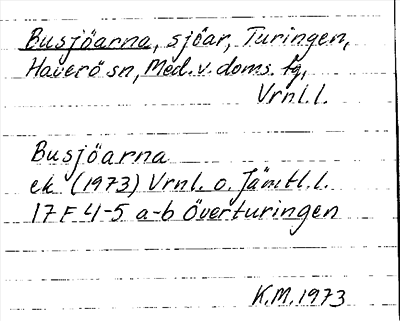 Busjöarna, sjöar, Turingen,
Haverö sn, Med. v. doms. tg,
Vrnl.l.
Busjöarna
ek (1973) Vrnl. o. Jämtl.l.
17 F 4-5 a-b Överturingen
K.M. 1973